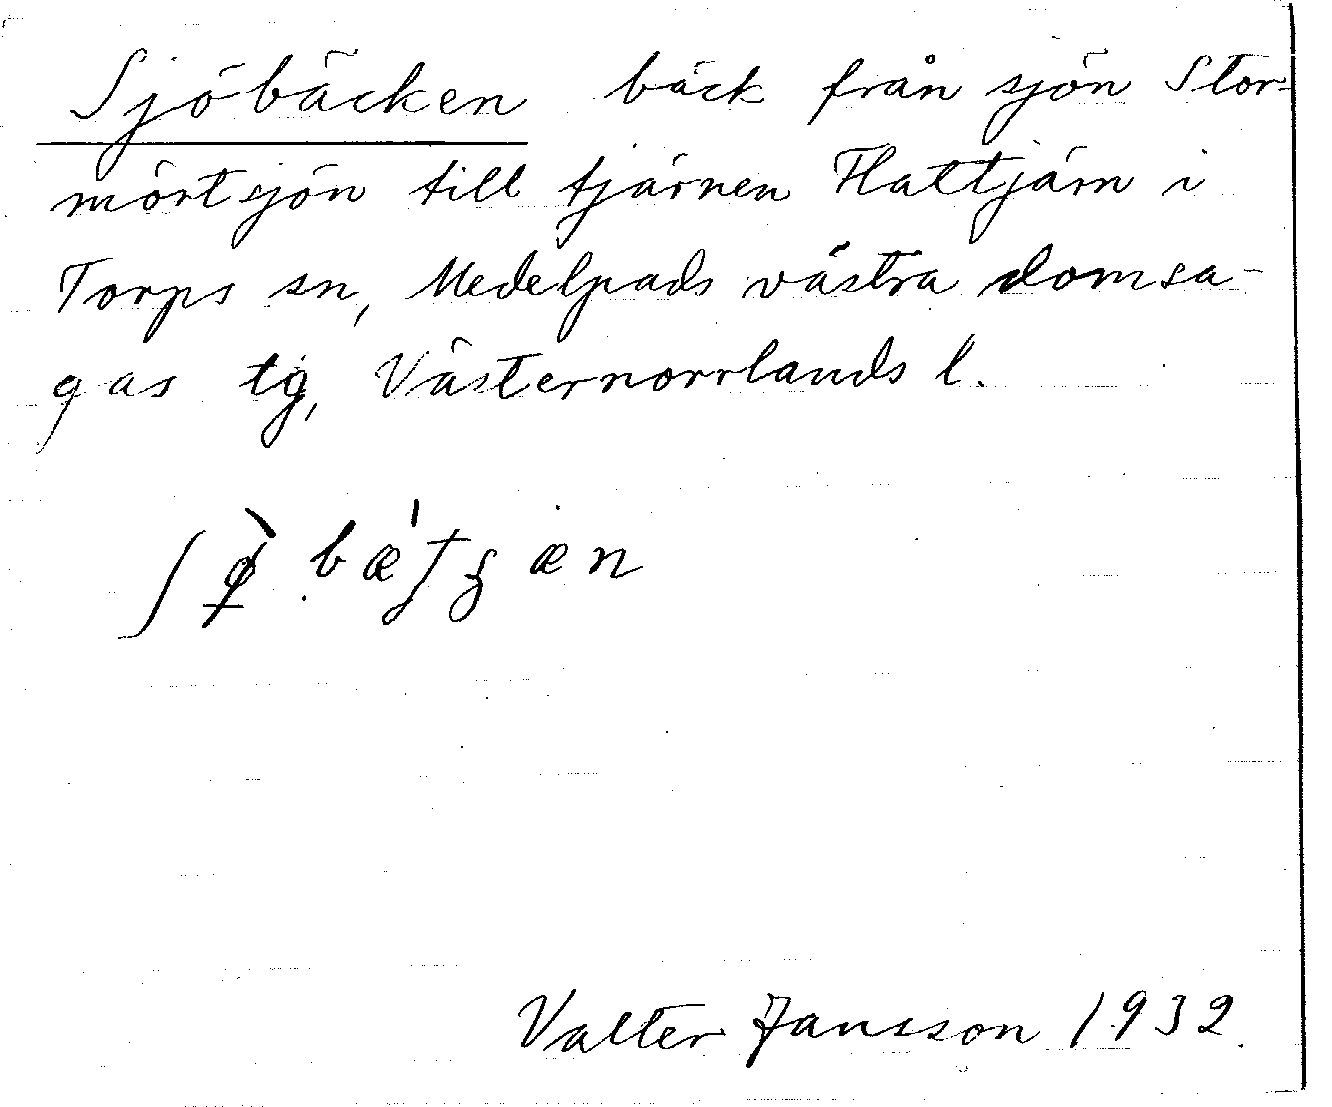 Sjöbäcken bäck från sjön Stor-
mörtsjön till tjärnen Hattjärn i
Torps sn, Medelpads västra domsa-
gas tg, Västernorrlands l.
Valter Jansson 1932.